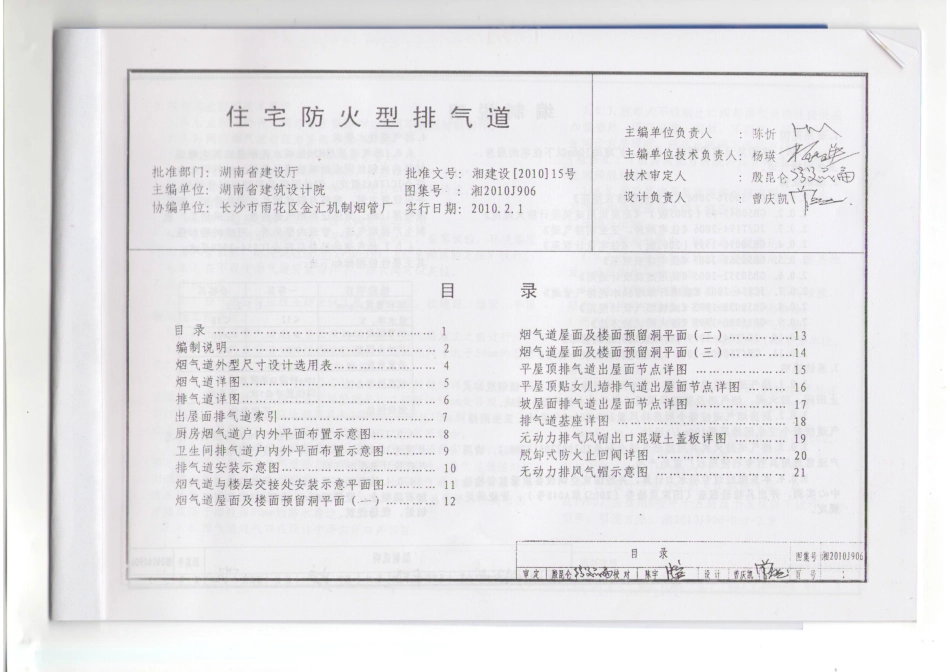 住宅防火型排气道
批准部门：湖南省建设厅 批准文号：湘建设[2010]15号
主编单位：湖南省建筑设计院 图集号：湘2010J906
协编单位：长沙市雨花区金汇机制烟管厂 实行日期：2010.2.1
主编单位负责人：陈忻
主编单位技术负责人：杨瑛
技术审定人：殷昆仑
设计负责人：曾庆凯
目 录
目 录 …… 1
编制说明…… 2
烟气道外型尺寸设计选用表…… 4
烟气道详图…… 5
排气道详图…… 6
出屋面排气道索引…… 7
厨房烟气道户内外平面布置示意图…… 8
卫生间排气道户内外平面布置示意图…… 9
排气道安装示意图…… 10
烟气道与楼层交接处安装示意平面图…… 11
烟气道屋面及楼面预留洞平面（一）…… 12
烟气道屋面及楼面预留洞平面（二）…… 13
烟气道屋面及楼面预留洞平面（三）…… 14
平屋顶排气道出屋面节点详图 …… 15
平屋顶贴女儿墙排气道出屋面节点详图 …… 16
坡屋面排气道出屋面节点详图 …… 17
排气道基座详图 …… 18
无动力排气风帽出口混凝土盖板详图 …… 19
脱卸式防火止回阀详图 …… 20
无动力排风气帽示意图 …… 21
目 录 图集号 湘2010J906
审定 殷昆仑 校对 陈宇 设计 曾庆凯 页号